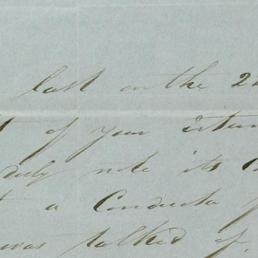 last on the 2
of your
duly note its
a Conducta
was talked of